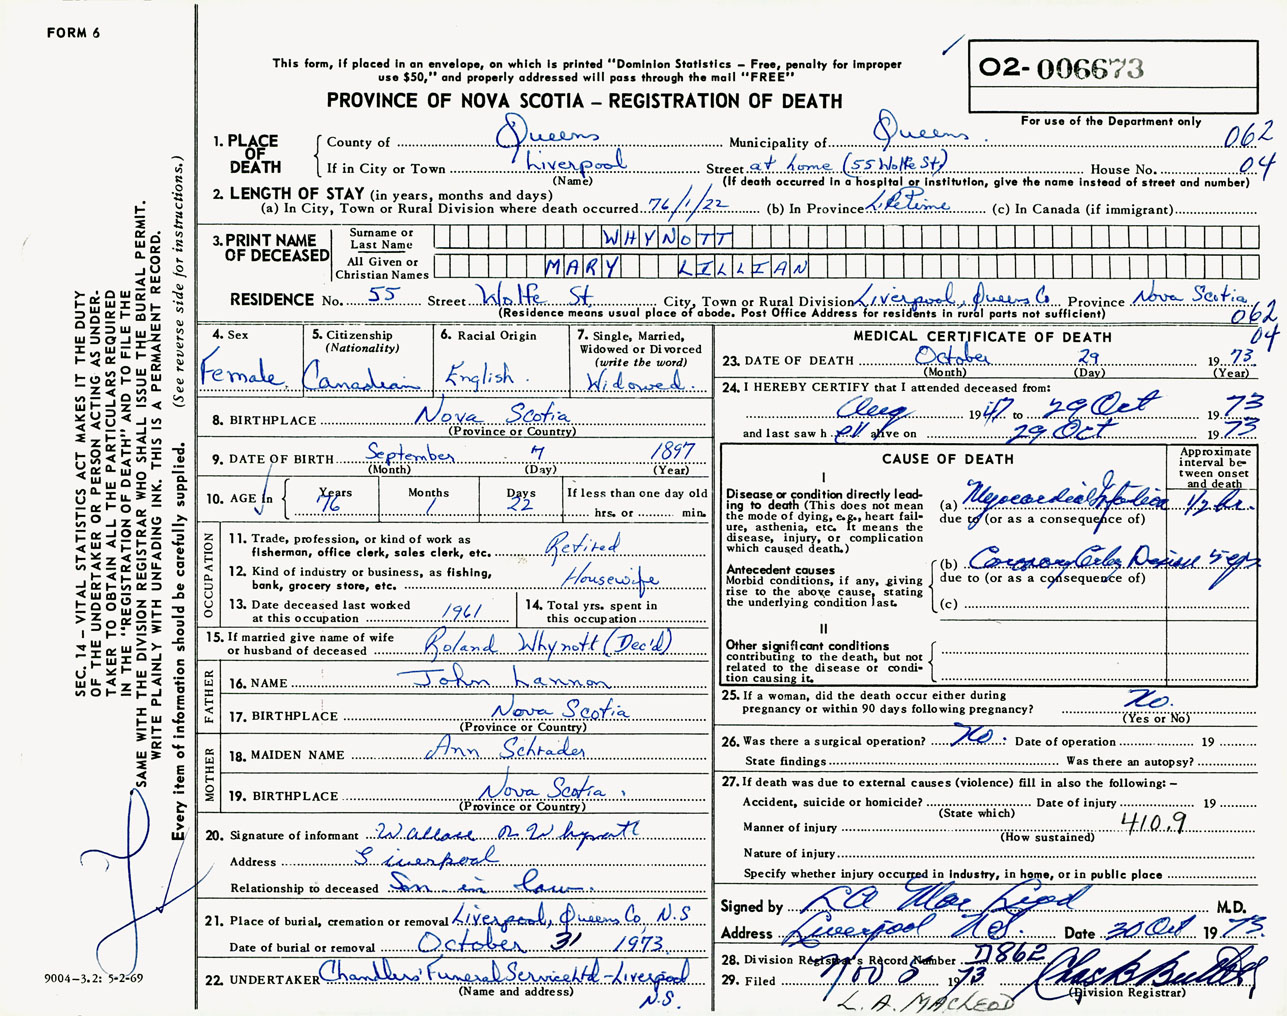 FORM 6
This form, if placed in an envelope, on which is printed "Dominion Statistics – Free, penalty for improper
use $50," and properly addressed will pass through the mail "FREE"
PROVINCE OF NOVA SCOTIA – REGISTRATION OF DEATH
O2-006673
For use of the Department only
062
04
1. PLACE OF DEATH
County of Queens Municipality of Queens
If in City or Town Liverpool Street at home (55 Wolfe St) House No.
(Name) (If death occurred in a hospital or institution, give the name instead of street and number)
2. LENGTH OF STAY (in years, months and days)
(a) In City, Town or Rural Division where death occurred 76/1/22 (b) In Province Lifetime (c) In Canada (if immigrant)
3. PRINT NAME OF DECEASED
Surname or Last Name WHYNOTT
All Given or Christian Names MARY LILLIAN
RESIDENCE No. 55 Street Wolfe St. City, Town or Rural Division Liverpool, Queens Co Province Nova Scotia
(Residence means usual place of abode. Post Office Address for residents in rural parts not sufficient)
062
04
4. Sex Female
5. Citizenship (Nationality) Canadian
6. Racial Origin English
7. Single, Married, Widowed or Divorced (write the word) Widowed
8. BIRTHPLACE Nova Scotia
(Province or Country)
9. DATE OF BIRTH September 7 1897
(Month) (Day) (Year)
10. AGE in Years 76 Months 1 Days 22 If less than one day old
hrs. or min.
OCCUPATION
11. Trade, profession, or kind of work as
fisherman, office clerk, sales clerk, etc. Retired
12. Kind of industry or business, as fishing,
bank, grocery store, etc. Housewife
13. Date deceased last worked
at this occupation 1961
14. Total yrs. spent in
this occupation
15. If married give name of wife
or husband of deceased Roland Whynott (Dec'd)
FATHER
16. NAME John Lannon
17. BIRTHPLACE Nova Scotia
(Province or Country)
MOTHER
18. MAIDEN NAME Ann Schrader
19. BIRTHPLACE Nova Scotia
(Province or Country)
20. Signature of informant Wallace R Whynott
Address Liverpool
Relationship to deceased Son in law
21. Place of burial, cremation or removal Liverpool, Queens Co, N.S
Date of burial or removal October 31 1973
22. UNDERTAKER Chandlers' Funeral Service Ltd – Liverpool
(Name and address) N.S.
MEDICAL CERTIFICATE OF DEATH
23. DATE OF DEATH October 29 1973
(Month) (Day) (Year)
24. I HEREBY CERTIFY that I attended deceased from:
Aug 1947 to 29 Oct 1973
and last saw h er alive on 29 Oct 1973
CAUSE OF DEATH
Approximate interval between onset and death
I
Disease or condition directly lead-
ing to death (This does not mean
the mode of dying, e.g., heart fail-
ure, asthenia, etc. It means the
disease, injury, or complication
which caused death.)
(a) Myocardial Infarction 1/2 hr.
due to (or as a consequence of)
Antecedent causes
Morbid conditions, if any, giving
rise to the above cause, stating
the underlying condition last.
(b) Coronary Artery Disease 5 yrs
due to (or as a consequence of)
(c)
II
Other significant conditions
contributing to the death, but not
related to the disease or condi-
tion causing it.
25. If a woman, did the death occur either during
pregnancy or within 90 days following pregnancy? No.
(Yes or No)
26. Was there a surgical operation? No. Date of operation 19
State findings Was there an autopsy?
27. If death was due to external causes (violence) fill in also the following: –
Accident, suicide or homicide? Date of injury 19
(State which)
Manner of injury 410.9
(How sustained)
Nature of injury
Specify whether injury occurred in industry, in home, or in public place
Signed by LA MacLeod M.D.
Address Liverpool N.S. Date 30 Oct 1973
28. Division Registrar's Record Number 862
29. Filed 1973
(Division Registrar)
L. A. MACLEOD
SEC. 14 – VITAL STATISTICS ACT MAKES IT THE DUTY
OF THE UNDERTAKER OR PERSON ACTING AS UNDER-
TAKER TO OBTAIN ALL THE PARTICULARS REQUIRED
IN THE "REGISTRATION OF DEATH" AND TO FILE THE
SAME WITH THE DIVISION REGISTRAR WHO SHALL ISSUE THE BURIAL PERMIT.
WRITE PLAINLY WITH UNFADING INK. THIS IS A PERMANENT RECORD.
Every item of information should be carefully supplied. (See reverse side for instructions.)
9004–3.2: 5-2-69